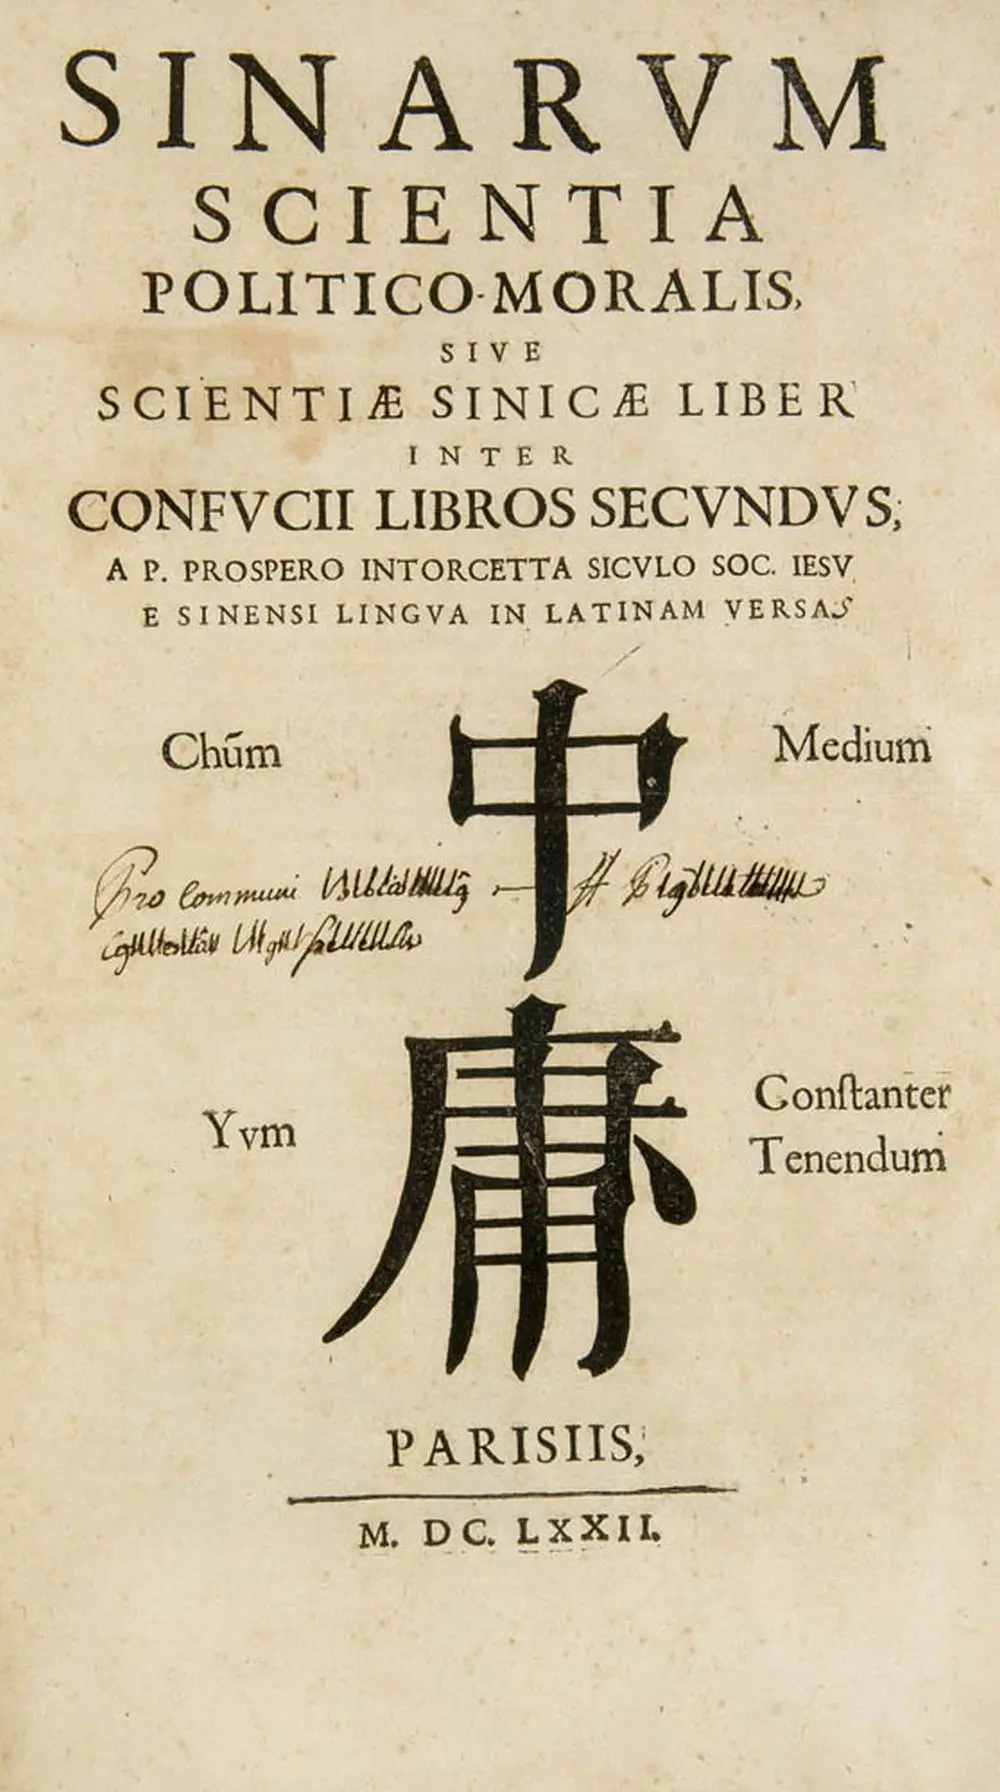 SINARVM
SCIENTIA
POLITICO-MORALIS,
SIVE
SCIENTIÆ SINICÆ LIBER
INTER
CONFVCII LIBROS SECVNDVS;
A P. PROSPERO INTORCETTA SICVLO SOC. IESV
E SINENSI LINGVA IN LATINAM VERSAS
Chūm 中 Medium
Pro communi
Yvm 庸 Constanter
Tenendum
PARISIIS,
M. DC. LXXII.